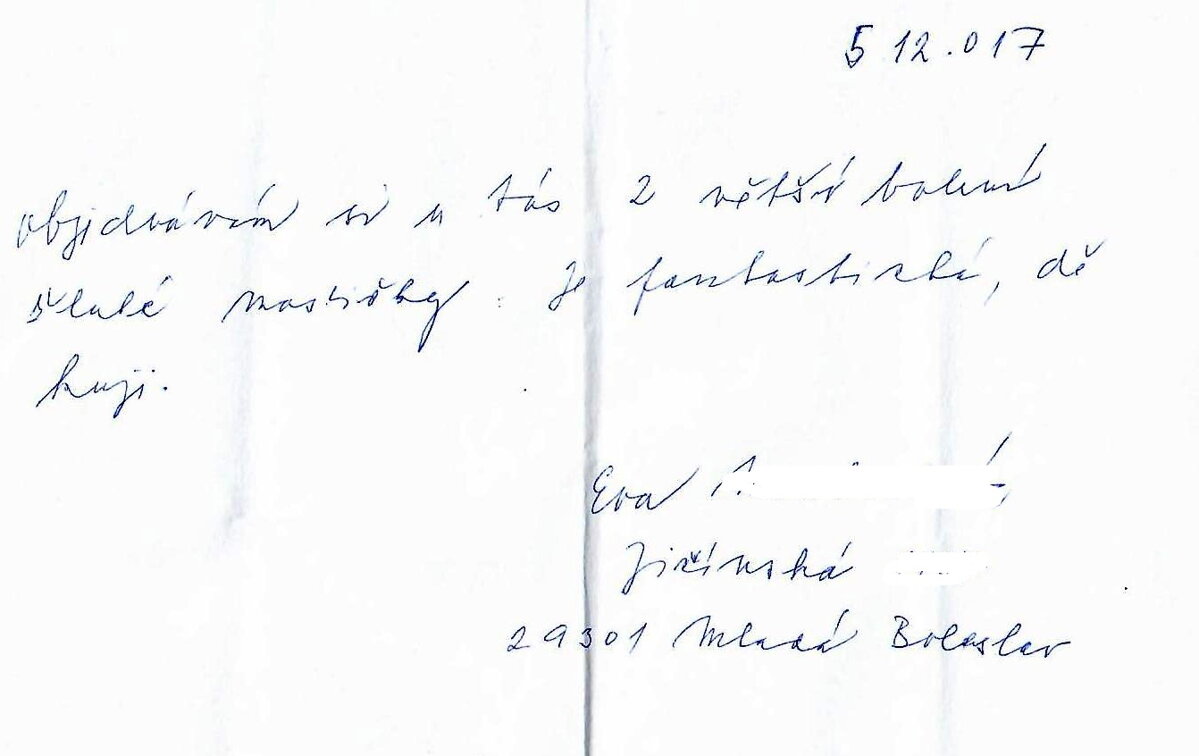 5 12.017
objednávám si u Vás 2 větší balení
žluté mastičky. Je fantastická, dě
kuji.
Eva
Jičínská
29301 Mladá Boleslav